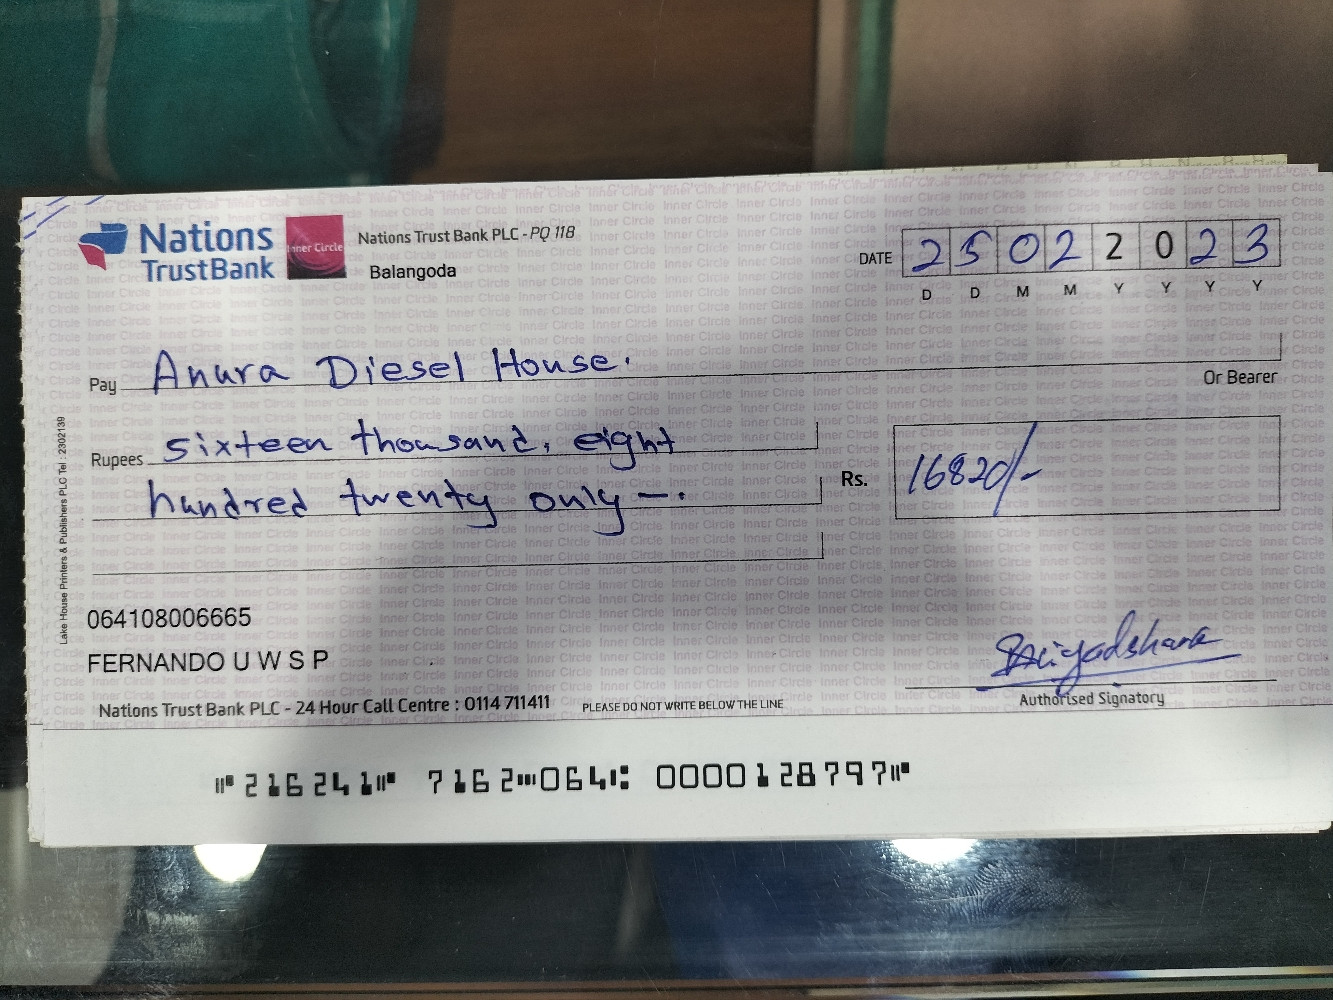 Nations
TrustBank
Inner Circle
Nations Trust Bank PLC - PQ 118
Balangoda
DATE 2 5 0 2 2 0 2 3
D D M M Y Y Y Y
Pay Anura Diesel House.
Or Bearer
Rupees sixteen thousand, eight
hundred twenty only —.
Rs. 16820/-
Lake House Printers & Publishers PLC Tel : 2302139
064108006665
FERNANDO U W S P
Authorised Signatory
Nations Trust Bank PLC - 24 Hour Call Centre : 0114 711411
PLEASE DO NOT WRITE BELOW THE LINE
⑈216241⑈ 7162⑉064⑆ 0000128797⑈